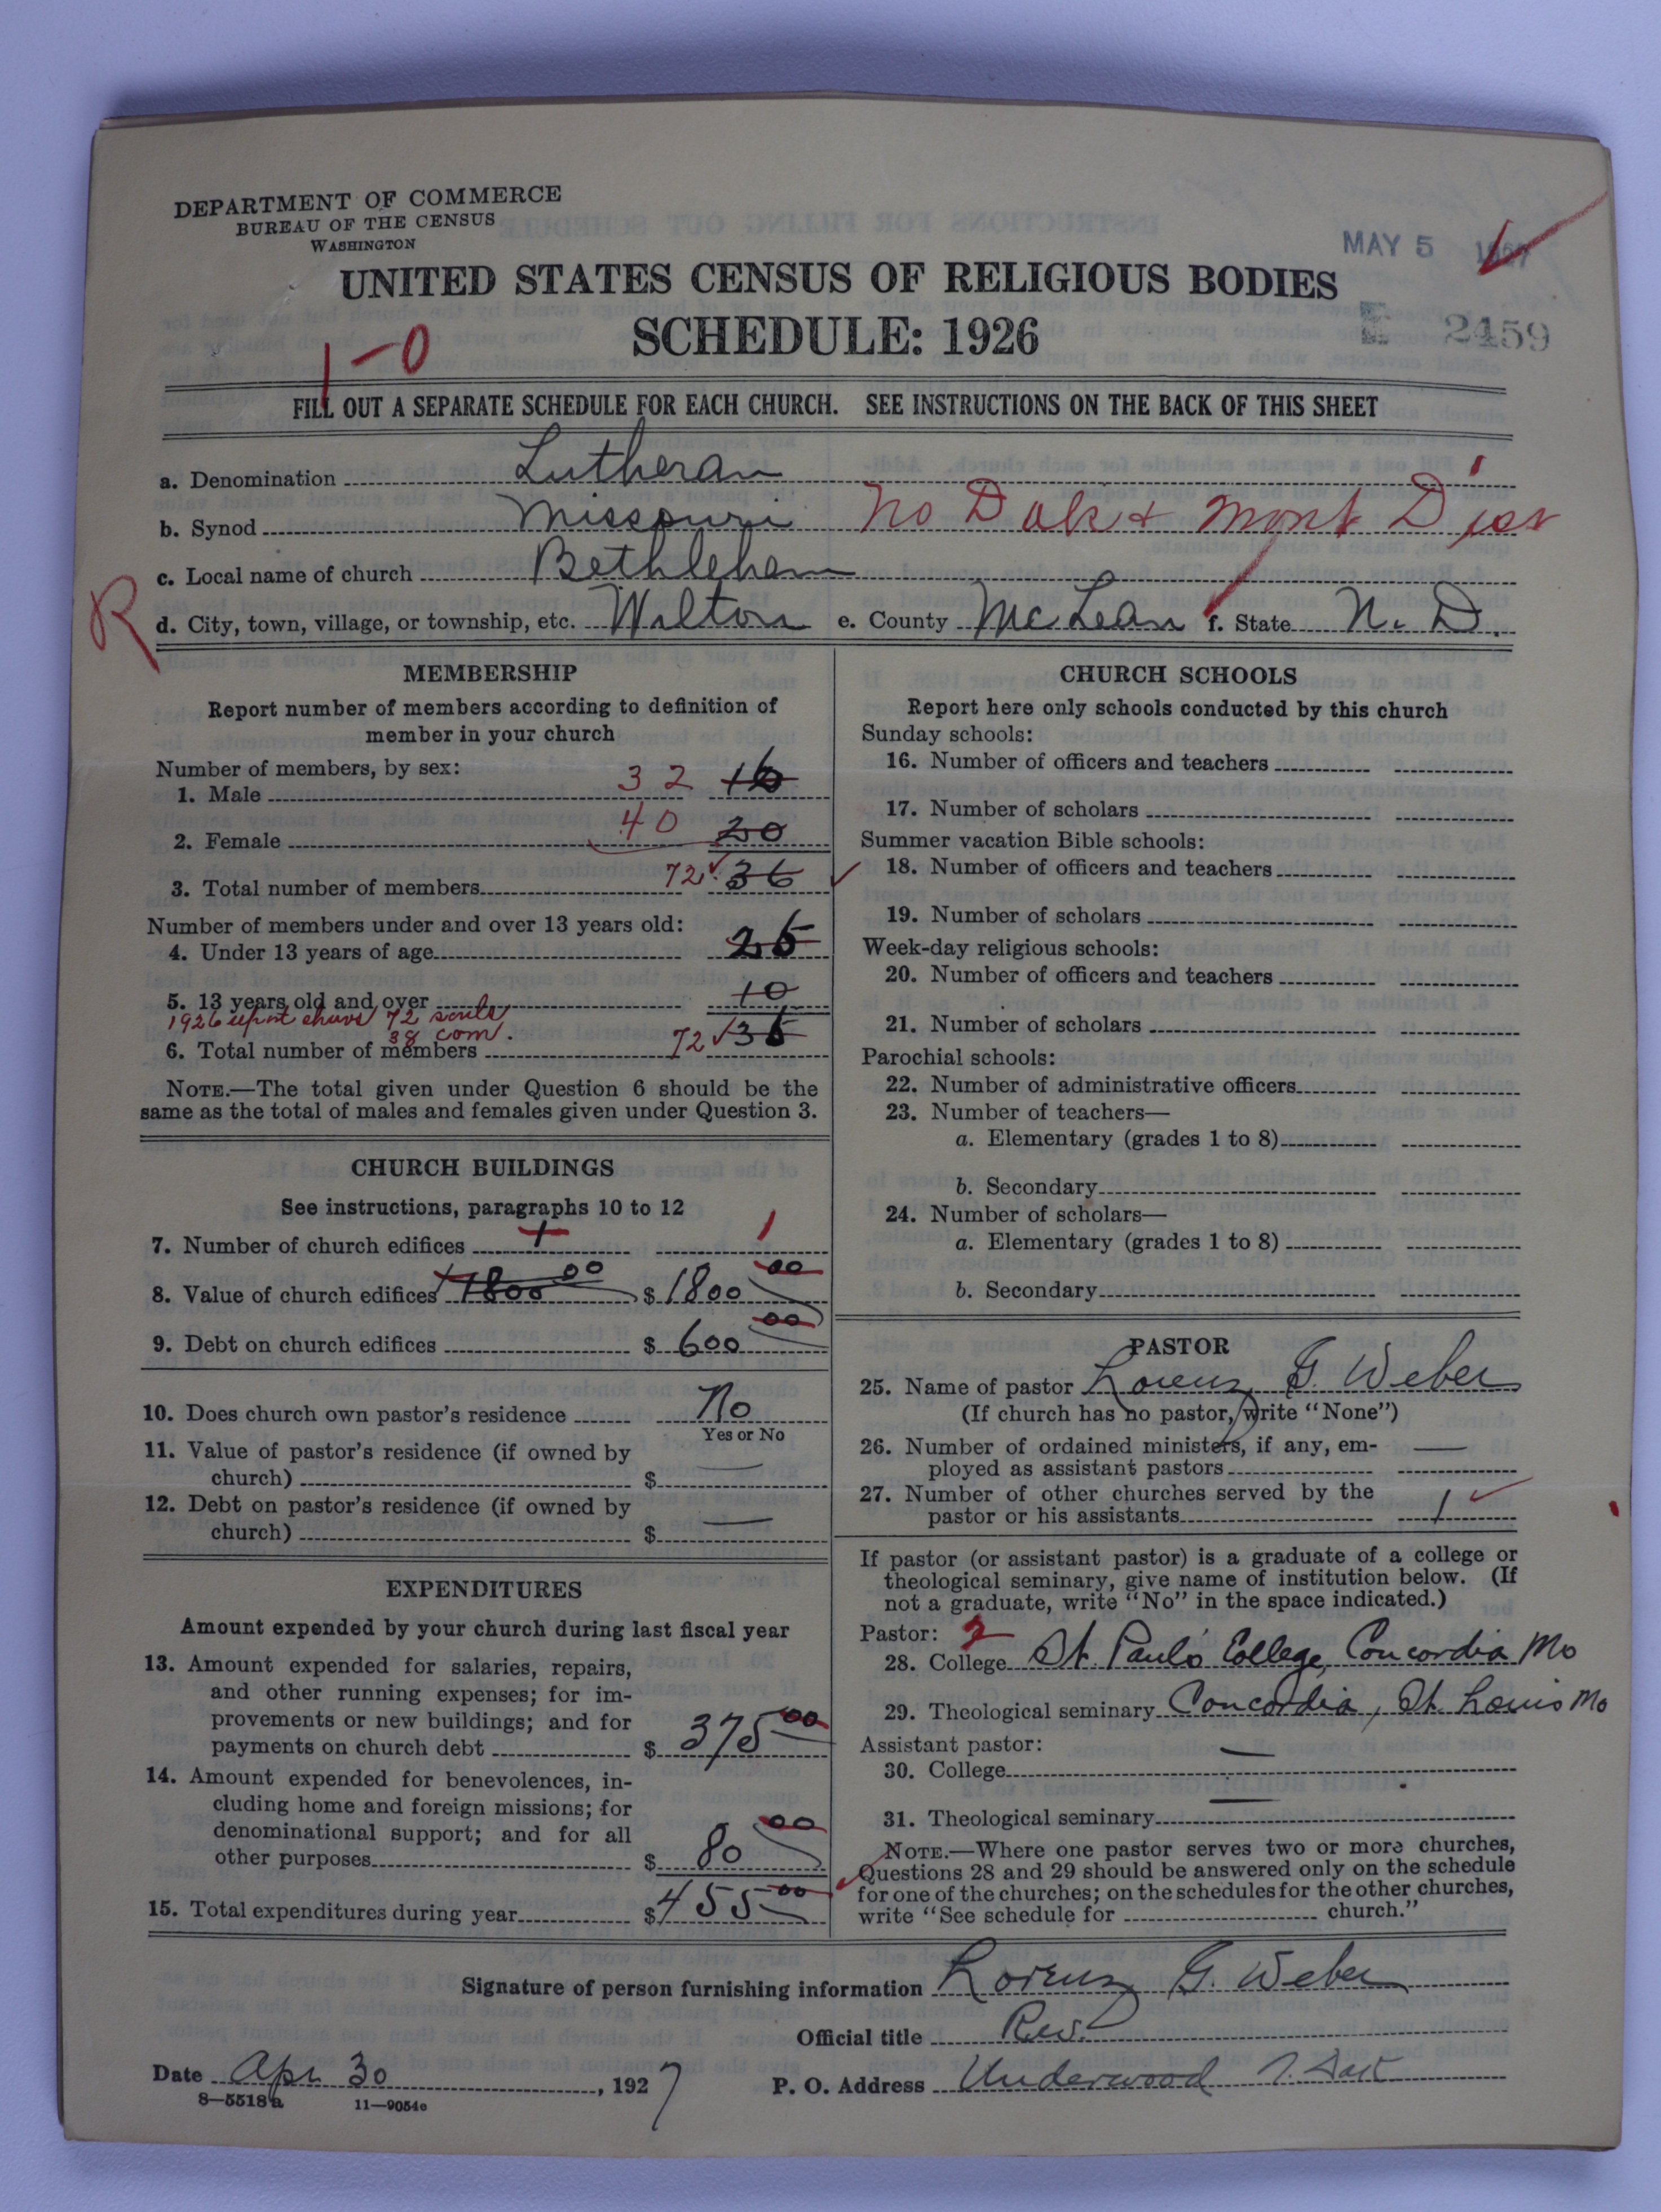 DEPARTMENT OF COMMERCE
BUREAU OF THE CENSUS
WASHINGTON
MAY 5 1927
UNITED STATES CENSUS OF RELIGIOUS BODIES
SCHEDULE: 1926
E 2459
1-0
FILL OUT A SEPARATE SCHEDULE FOR EACH CHURCH. SEE INSTRUCTIONS ON THE BACK OF THIS SHEET
a. Denomination Lutheran
b. Synod Missouri No Dak & Mont Dist
c. Local name of church Bethlehem
R
d. City, town, village, or township, etc. Wilton e. County McLean f. State N. D.
MEMBERSHIP
Report number of members according to definition of
member in your church
Number of members, by sex:
1. Male 32 16
2. Female 40 20
3. Total number of members 72 36
Number of members under and over 13 years old:
4. Under 13 years of age
5. 13 years old and over 10
1926 shows 72 souls
38 com.
6. Total number of members 72
NOTE.—The total given under Question 6 should be the
same as the total of males and females given under Question 3.
CHURCH BUILDINGS
See instructions, paragraphs 10 to 12
7. Number of church edifices 1 1
8. Value of church edifices 1800 00 $ 1800 00
9. Debt on church edifices $ 600 00
10. Does church own pastor's residence No
Yes or No
11. Value of pastor's residence (if owned by
church) $ —
12. Debt on pastor's residence (if owned by
church) $ —
EXPENDITURES
Amount expended by your church during last fiscal year
13. Amount expended for salaries, repairs,
and other running expenses; for im-
provements or new buildings; and for
payments on church debt $ 375 00
14. Amount expended for benevolences, in-
cluding home and foreign missions; for
denominational support; and for all
other purposes $ 80 00
15. Total expenditures during year $ 455 00
CHURCH SCHOOLS
Report here only schools conducted by this church
Sunday schools:
16. Number of officers and teachers
17. Number of scholars
Summer vacation Bible schools:
18. Number of officers and teachers
19. Number of scholars
Week-day religious schools:
20. Number of officers and teachers
21. Number of scholars
Parochial schools:
22. Number of administrative officers
23. Number of teachers—
a. Elementary (grades 1 to 8)
b. Secondary
24. Number of scholars—
a. Elementary (grades 1 to 8)
b. Secondary
PASTOR
25. Name of pastor Lorenz G. Weber
(If church has no pastor, write "None")
26. Number of ordained ministers, if any, em-
ployed as assistant pastors —
27. Number of other churches served by the
pastor or his assistants 1
If pastor (or assistant pastor) is a graduate of a college or
theological seminary, give name of institution below. (If
not a graduate, write "No" in the space indicated.)
Pastor: 2
28. College St. Paul's College, Concordia Mo
29. Theological seminary Concordia, St. Louis Mo
Assistant pastor:
30. College —
31. Theological seminary —
NOTE.—Where one pastor serves two or more churches,
Questions 28 and 29 should be answered only on the schedule
for one of the churches; on the schedules for the other churches,
write "See schedule for church."
Signature of person furnishing information Lorenz G. Weber
Official title Rev.
Date Apr 30, 1927 P. O. Address Underwood N. Dak
8—5518a 11—9054e